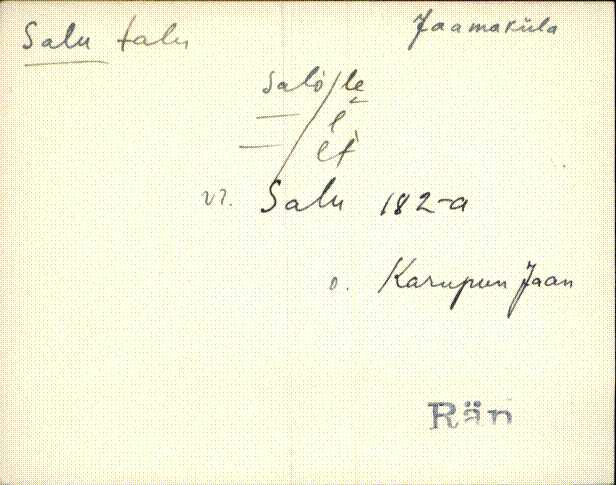 Salu talu
Jaamaküla
salo/le
— l
— lt
vt. Salu 182-a
o. Karupun Jaan
Rän